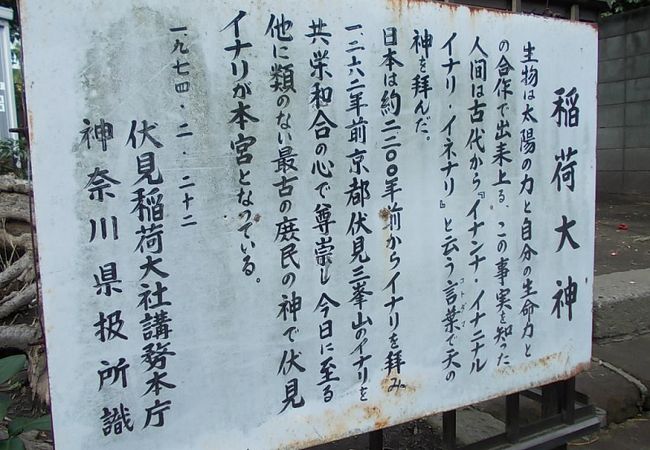 稲荷大神
生物は太陽の力と自分の生命力と
の合作で出来上る、この事実を知った
人間は古代から『イナンナ・イナニナル
イナリ・イネナリ』と云う言葉で天の
コトバ
神を拝んだ。
日本は約二二〇〇年前からイナリを拝み
一、二六二年前京都伏見三峯山のイナリを
共栄和合の心で尊崇し今日に至る
他に類のない最古の庶民の神で伏見
イナリが本宮となっている。
一、九七四・二・二十二
伏見稲荷大社講務本庁
神奈川県扱所識